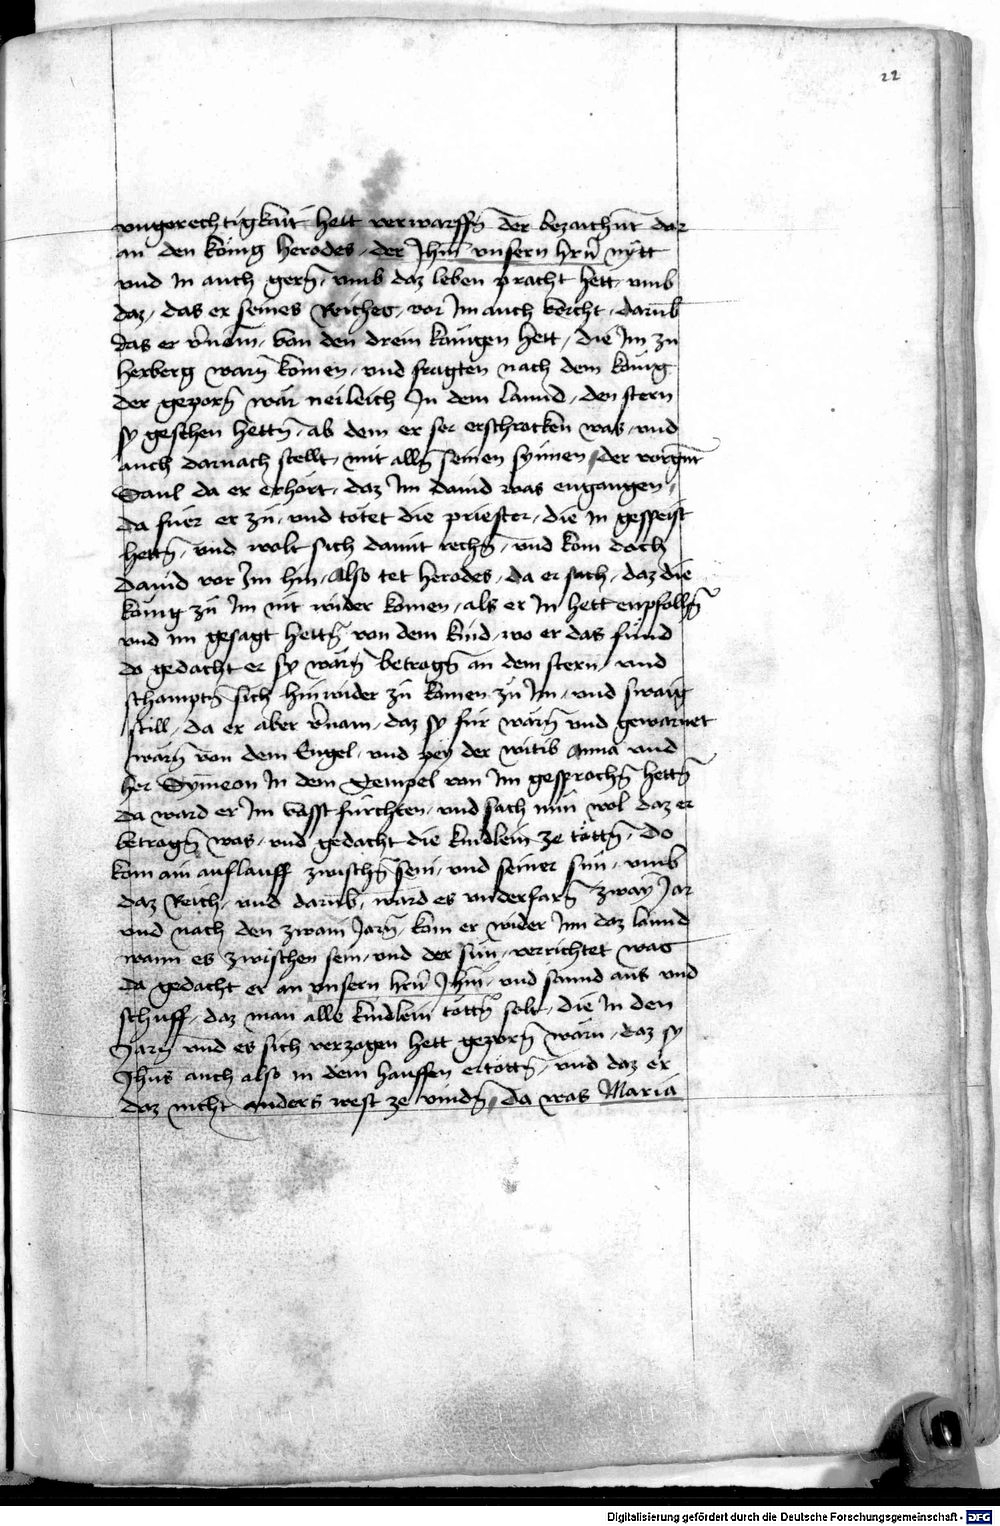 22
ungerechtigkait hett verwarffñ der bezaichnt dar
an den könig herodes, der Jhm̄ unsern hrñ nytt
und in auch gerñ, umb daz leben pracht hett, umb
daz, das er seines Reiches, vor Im auch vorcht, darūb
das er v̄nem̄, van den drein künigen hett, die Im zu
herberg warñ komen, und fragten nach dem könig
der geporñ wär neileich In dem lannd, den stern
sy gesehen hettñ, ab dem er ser erschrocken was, und
auch darnach stellt, mit allñ seinen synnen, der
Saul da er erhört, daz Im dauid was engangen,
da fuer er zu, und totet die priester, die in gespeist
hettñ, und wolt sich damit rechñ, und kom doch
Dauid vor Im hin, Also tet herodes, da er sach, daz die
könig zü Im nit wider komen, als er In hett enpfollñ
und im gesagt hettñ von dem kind, wo er das fünd
do gedacht er sy wärñ betrogñ an dem stern, und
schamptñ sich hinwider zü komen zu Im, und swaig
still, da er aber v̄nam, daz sy für wärñ und gewarnet
wärñ von dem Engel, und pey der witib Anna und
her Symeon In dem Tempel von Im gesprochñ hettñ
da ward er Im vasst fürchten, und sach nün wol daz er
betrogñ was, und gedacht die kindlein ze töttñ, do
kom ain auflauff zwischñ sein, und seiner sün, umb
daz Reich, und darūb, ward es underfarñ zway Jar
und nach den zwain Jarñ, kam er wider Inn daz lannd
wann es zwischen sein, und der sün, verrichtet was
da gedacht er an unsern hrñ Jhm̄, und sannd aus und
schuff, daz man alle kindlein töttñ solt, die In den
Jarñ und es sich verzogen hett geporñ wärn, daz sy
Jhūs auch also in dem hauffen ertöttñ, und daz er
daz nicht anders west ze vindñ, da was Maria
Digitalisierung gefördert durch die Deutsche Forschungsgemeinschaft - DFG